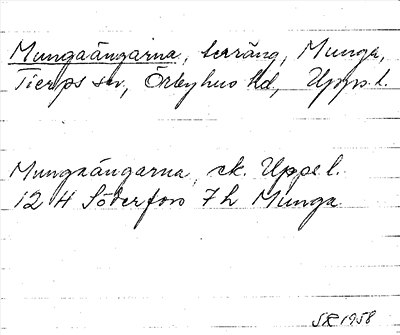 Mungaängarna, terräng, Munga,
Tierps sn, Örbyhus hd, Uppl.
Mungaängarna, ek. Uppl.
12 H Söderfors 7h Munga
SR 1958